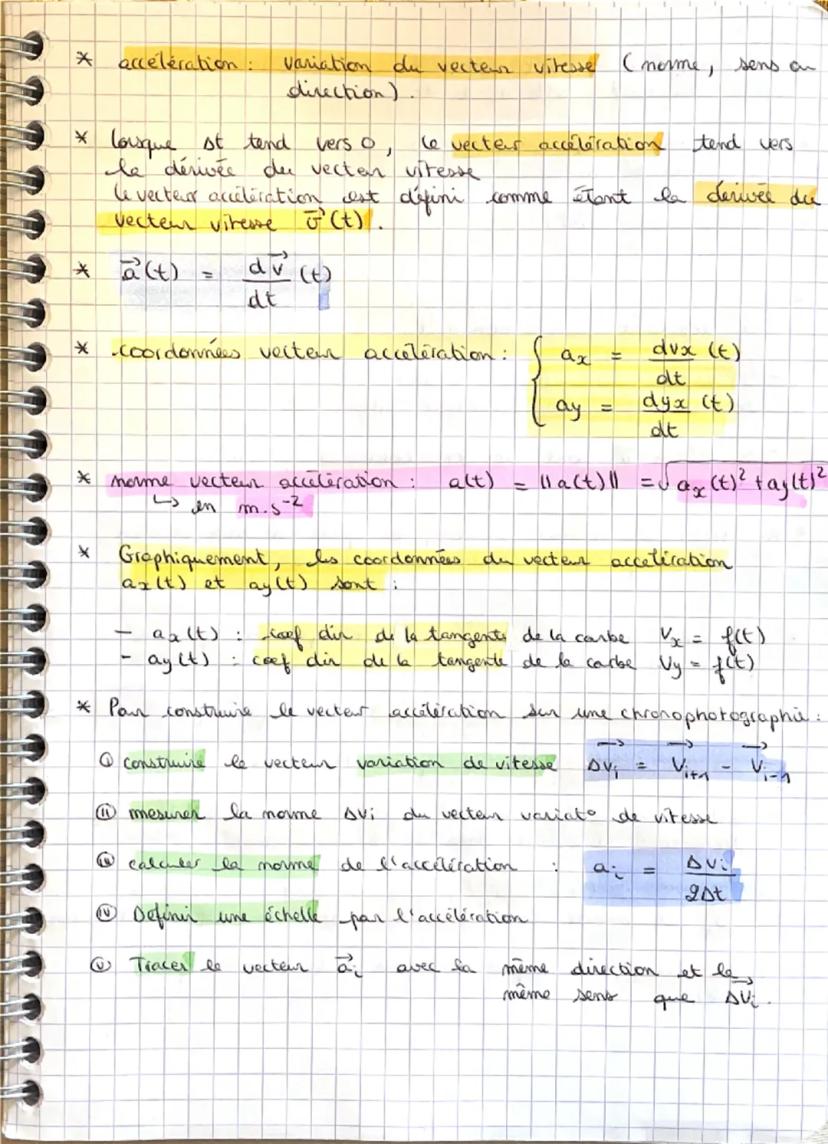 * accélération : variation du vecteur vitesse (norme, sens ou
direction).
* lorsque Δt tend vers 0, le vecteur accélération tend vers
la dérivée du vecteur vitesse
le vecteur accélération est défini comme étant la dérivée du
vecteur vitesse v⃗(t).
* a⃗(t) = dv⃗/dt (t)
* coordonnées vecteur accélération : { ax = dvx/dt (t)
ay = dyx/dt (t)
* norme vecteur accélération : a(t) = ||a(t)|| = √ax(t)² + ay(t)²
↳ en m.s⁻²
* Graphiquement, les coordonnées du vecteur accélération
ax(t) et ay(t) sont :
- ax(t) : coef dir de la tangente de la courbe Vx = f(t)
- ay(t) : coef dir de la tangente de la courbe Vy = f(t)
* Pour construire le vecteur accélération sur une chronophotographie :
ⓘ construire le vecteur variation de vitesse ΔVi⃗ = Vi+1⃗ - Vi-1⃗
ⓘⓘ mesurer la norme ΔVi du vecteur variat° de vitesse
ⓘⓘⓘ calculer la norme de l'accélération : ai = ΔVi/2Δt
ⓘⓥ Définir une échelle par l'accélération
ⓥ Tracer le vecteur a⃗i avec la même direction et le
même sens que ΔVi⃗.